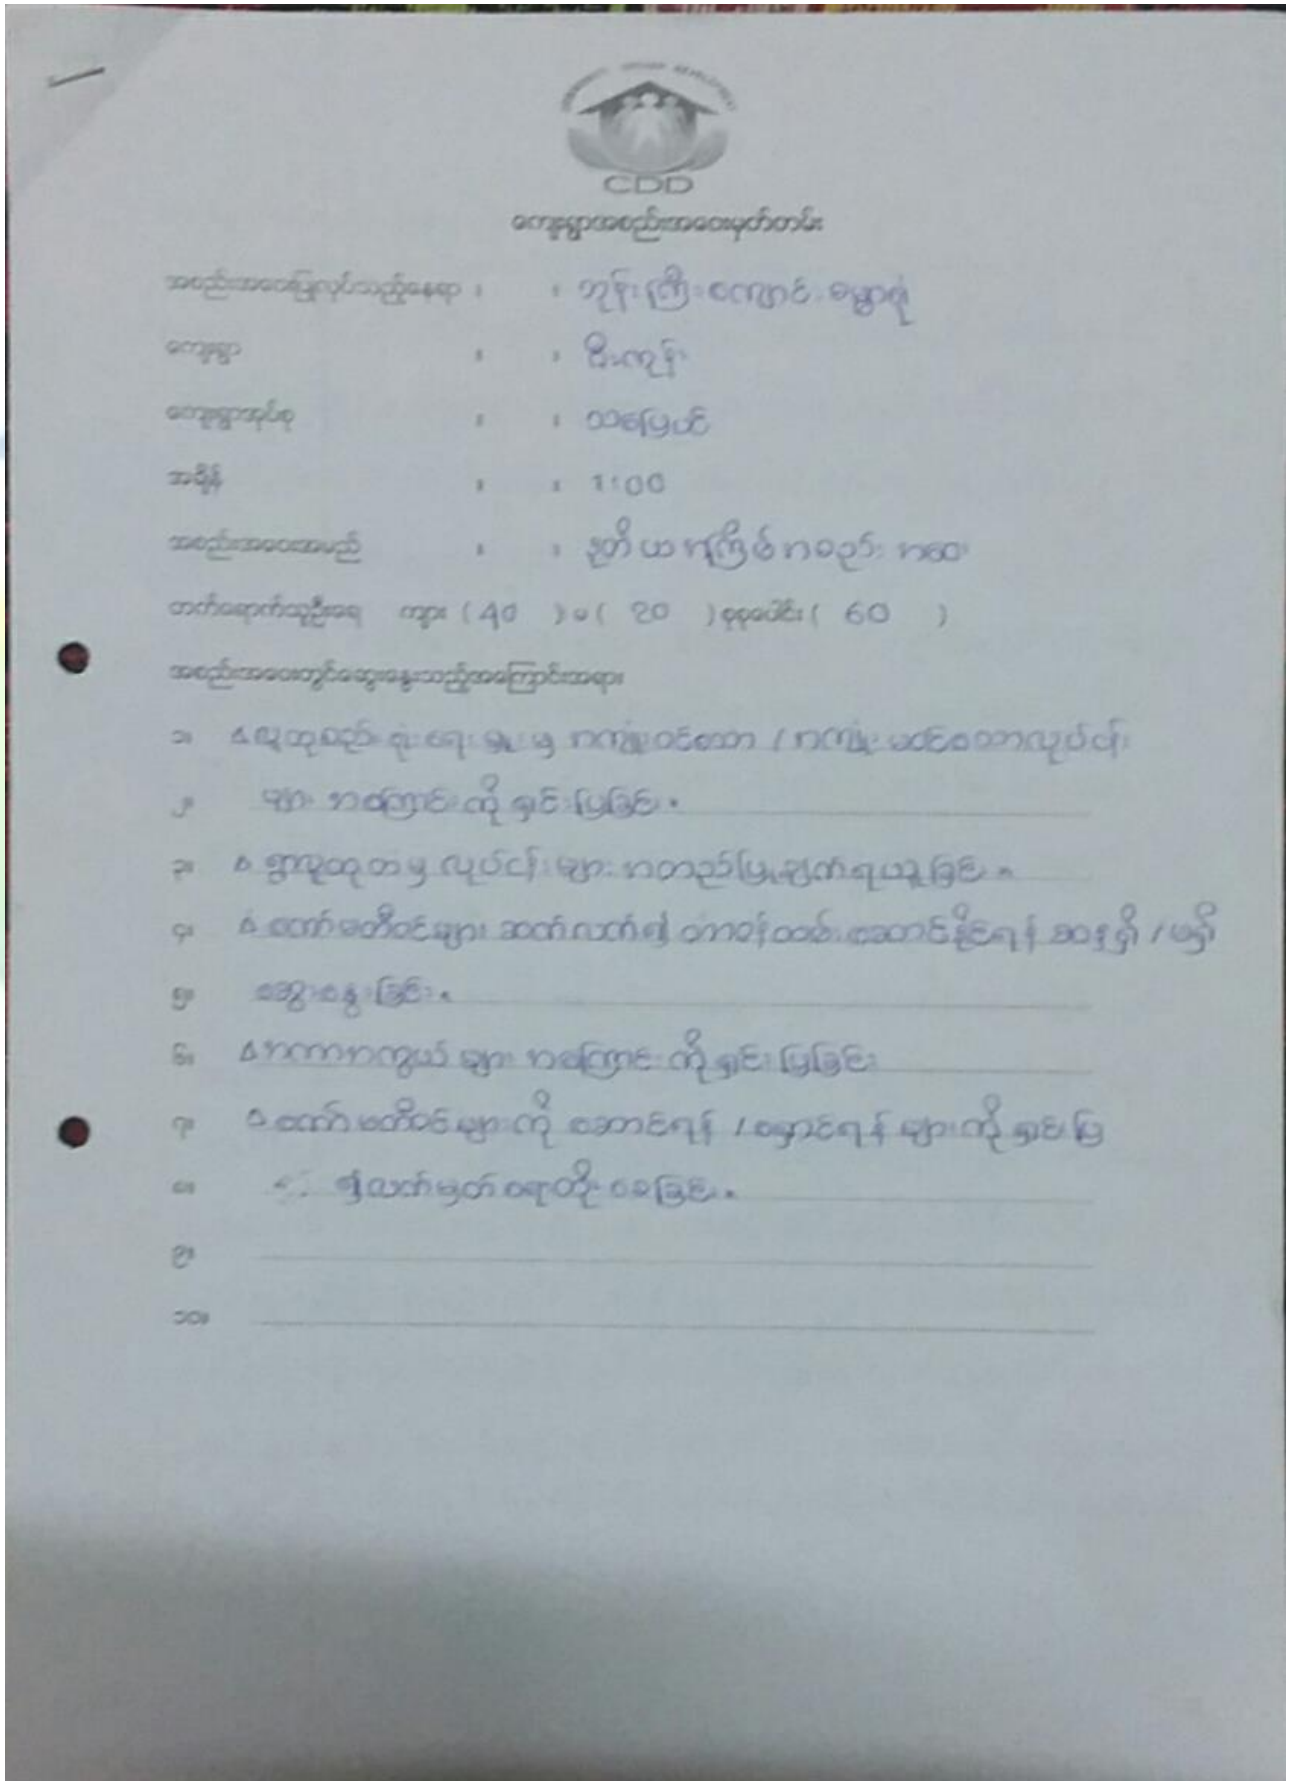 CDD
ကျေးရွာအစည်းအဝေးမှတ်တမ်း
အစည်းအဝေးပြုလုပ်သည့်နေရာ ။ ။ ဘုန်းကြီးကျောင်း ဓမ္မာရုံ
ကျေးရွာ ။ ။ မီးကုန်း
ကျေးရွာအုပ်စု ။ ။ သပြေပင်
အချိန် ။ ။ 1:00
အစည်းအဝေးအမည် ။ ။ ဒုတိယအကြိမ်အစည်းအဝေး
တက်ရောက်သူဦးရေ ကျား (40 ) မ ( 20 ) စုစုပေါင်း ( 60 )
အစည်းအဝေးတွင်ဆွေးနွေးသည့်အကြောင်းအရာ
၁။ လူထုစည်းရုံးရေးမှူးမှ အကျုံးဝင်သော / အကျုံးမဝင်သောလုပ်ငန်း
၂။ များအကြောင်းကို ရှင်းပြခြင်း။
၃။ ရွာလူထုထံမှ လုပ်ငန်းများ အတည်ပြုချက်ရယူခြင်း။
၄။ ကော်မတီဝင်များ ဆက်လက်၍ တာဝန်ထမ်းဆောင်နိုင်ရန် ဆန္ဒရှိ / မရှိ
၅။ ဆွေးနွေးခြင်း။
၆။ အကာအကွယ်များ အကြောင်းကို ရှင်းပြခြင်း
၇။ ကော်မတီဝင်များကို ဆောင်ရန် / ရှောင်ရန်များကို ရှင်းပြ
၈။ ၍လက်မှတ်ရေးထိုးစေခြင်း။
၉။
၁၀။